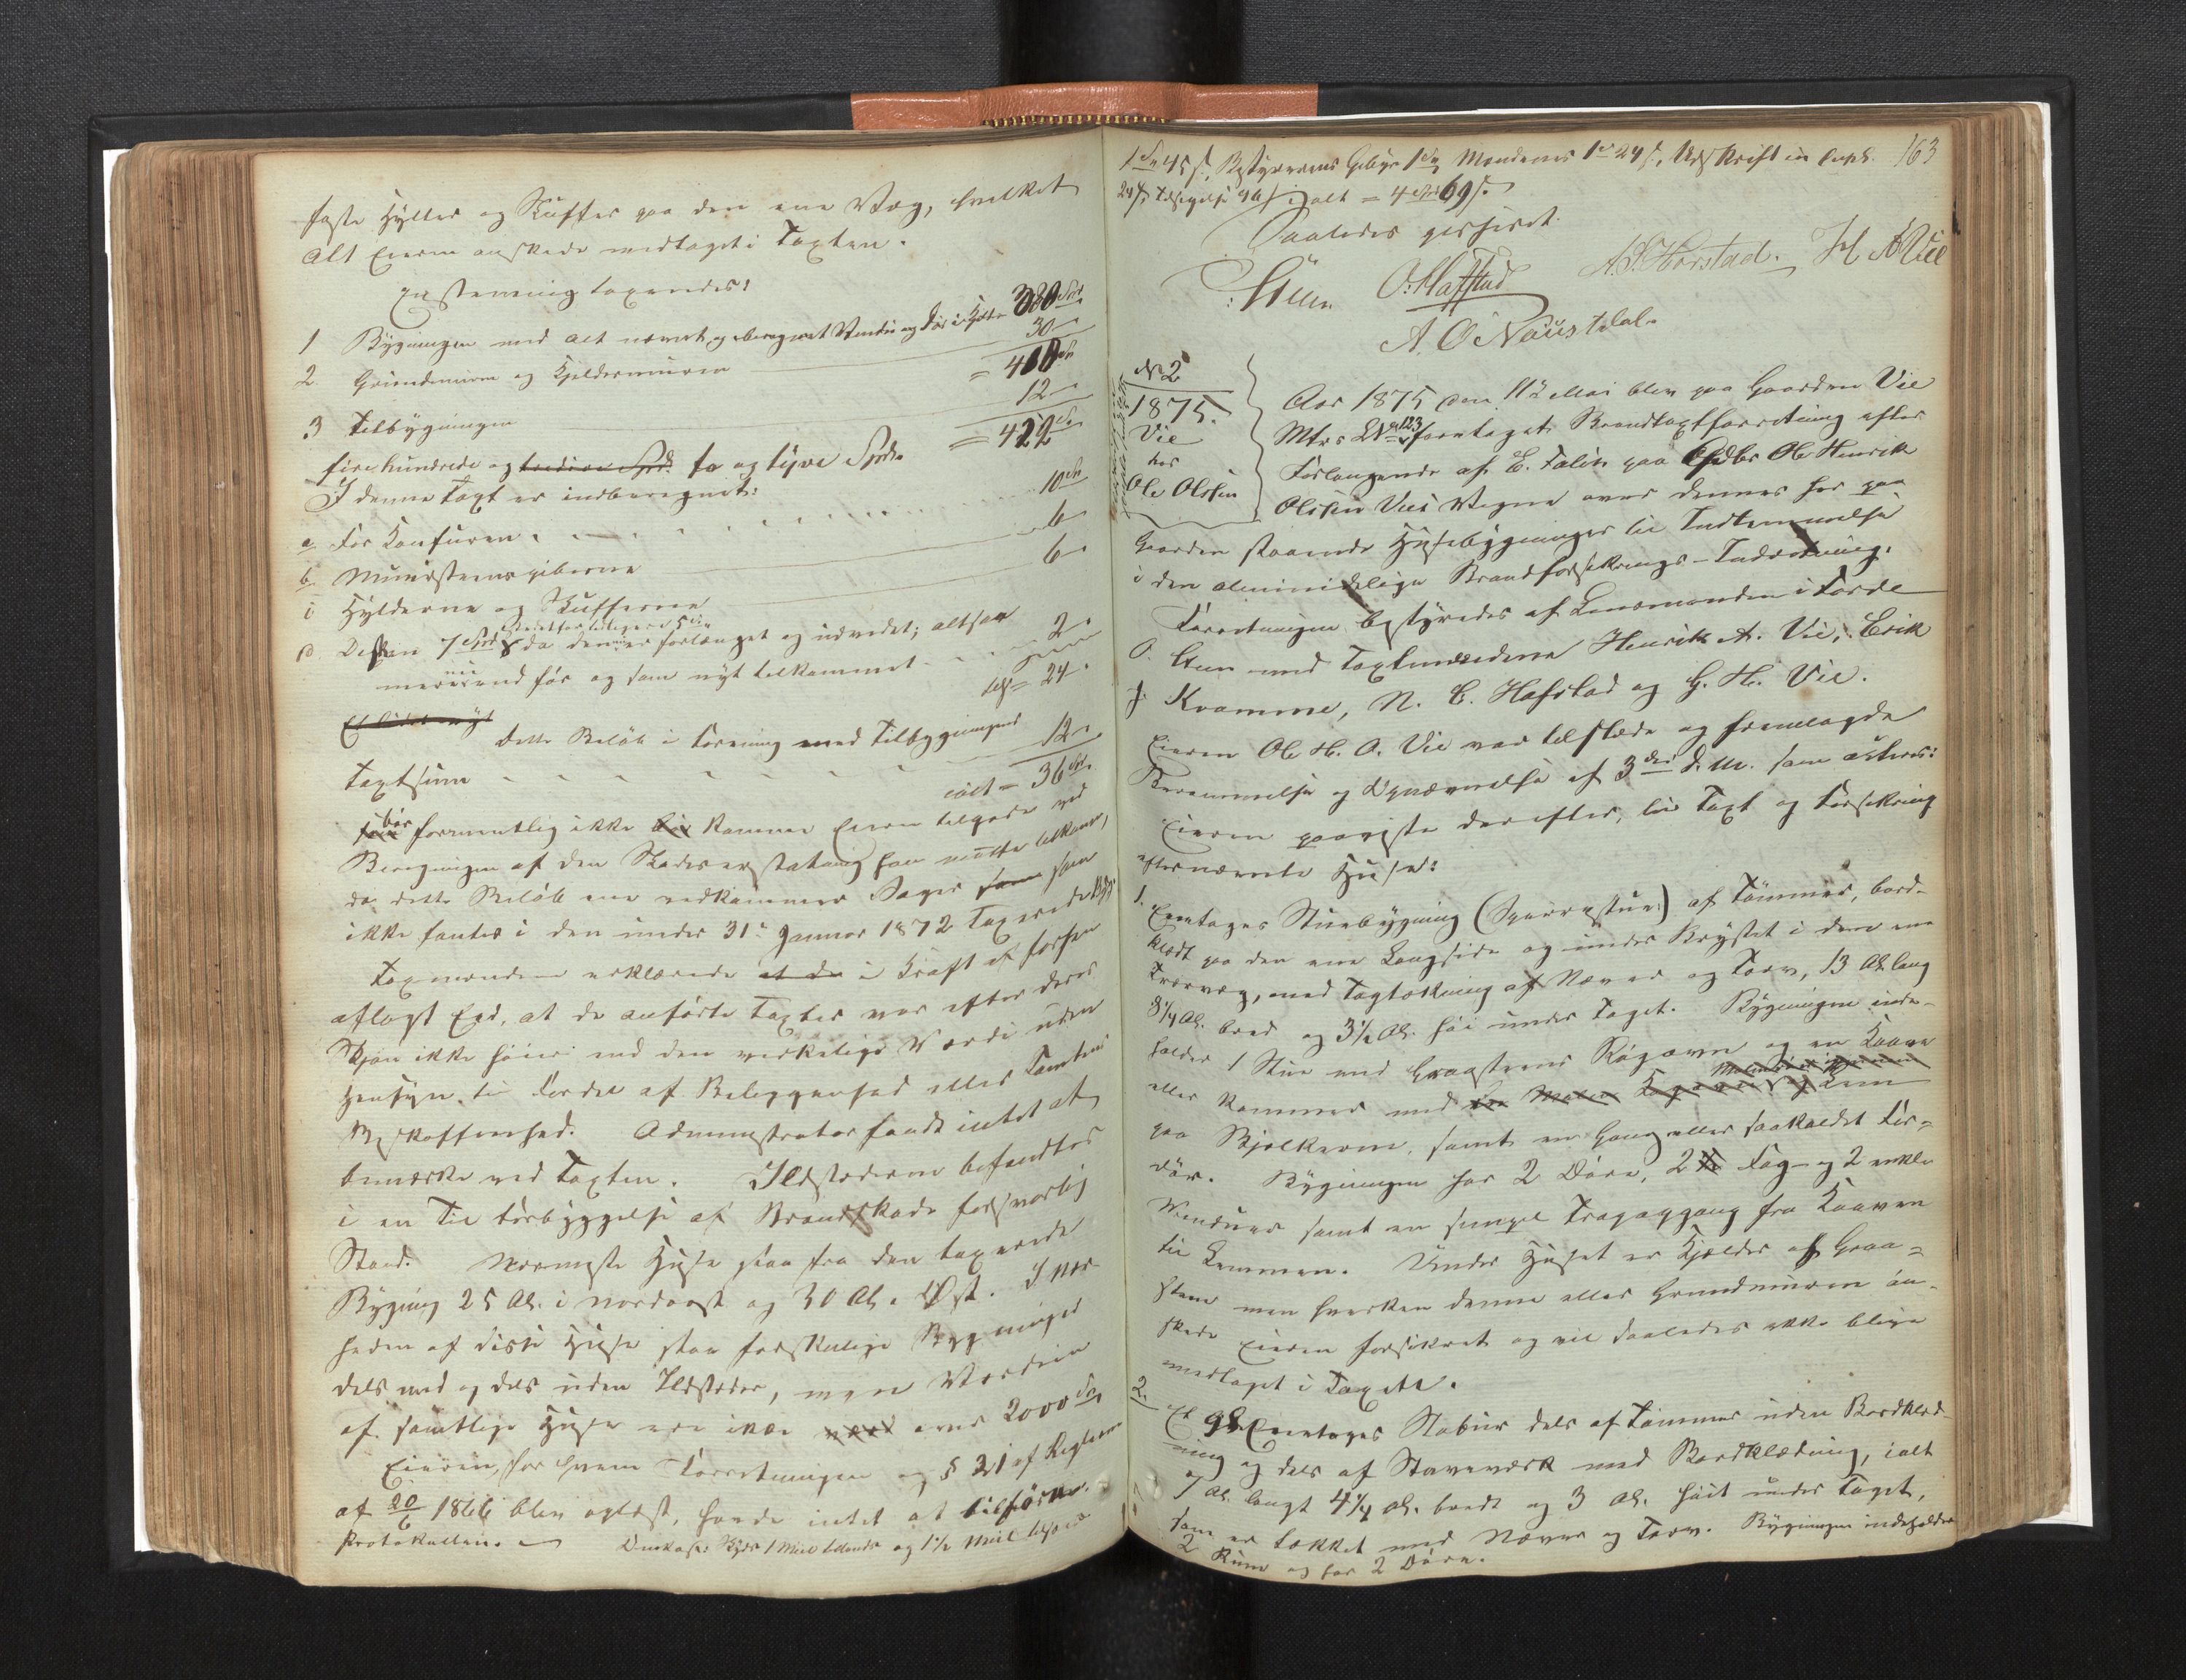 faste Hylder og Skuffer paa den ene Væg, hvilket
Alt Eieren ønskede medtaget i Taxten.
Gjenstanding taxeredes:
1 Bygningen med Alt nævnt, og iberegnet Vinduer og Dør i Gjæld 380 Spd
2 Grundmuren og Kjeldermuren 30 "
= 410 Sp
3 Tilbygningen 12 "
= 422 Sp
fire hundrede og tredive Spd. to og tyve Spdlr.
I denne Taxt er indberegnet:
a For Konturen 10 Sp
b Muurstenspiberne 6 "
c Hylderne og Skufferne 6 "
d Disken 7 Spd da denne er forlænget og udvedet; altsaa
mere nu end før og som nyt tilkommet 2 "
tils = 24 "
Et lidet nyt
dette Beløb i Forening med Tilbygningens
Taxtsum 12 "
ialt = 36 Spd.
bør formentlig ikke komme Eieren tilgode ved
Beregningen af den Skadeserstatning han maatte tilkomme,
da dette Beløb vedkommer Sager som
ikke fantes i den under 31te Januar 1872 Taxerede Byg.
Taxmændene erklærede at de i Kraft af forhen
aflagt Eed, at de anførte Taxter var efter deres
Skjøn ikke høiere end den virkelige Værdi uden
Hensyn til Fordel af Beliggenhed eller Tomtens
Beskaffenhed. Administrator fandt intet at
bemærke ved Taxten. Ildstederne befandtes
i en til Forbyggelse af Brandskade forsvarlig
Stand. Nærmeste Huse staa fra den taxerede
Bygning 25 Al. i Nordvest og 30 Al. i Øst. I Nær-
heden af disse Huse staa forskjellige Bygninger
dels med og dels uden Ildsteder, men Værdien
af samtlige Huse er ikke over 2000 Spd.
Eieren, for hvem Forretningen og § 21 af Reglem.
af 20/6 1866 blev oplæst, havde intet at tilføre
Protokollen. Omkost: Skyds 1 Miil tillands og 1½ Miil tilsøes
163
1 Sp 45 s, Bestyrerens Gebyr 1 Sp, Mændenes 1 " 24 s, Udskrift in dupl.
24 s, Tilsigelse 96 s, i alt = 4 Spd 69 s.
Saaledes passeret.
O. Steen O. Hafstad A. S. Horstad. H A Vie
A. O Naustdal.
No 2
1875.
Vie
hos
Ole Olsen
Aar 1875 den 11te Mai blev paa Gaarden Vie
Mtr. LNo 123 foretaget Brandtaxtforretning efter
Forlangende af E. Falch paa Gbr. Ole Henrik
Olssen Vies Vegne over dennes her paa
Gaarden staaende Husebygninger til Indtemmelse
i den almindelige Brandforsikrings-Indretning.
Forretningen bestyredes af Lensmanden i Førde
O. Steen med Taxtmændene Henrik A. Vie, Erik
J. Kvamme, N. E. Hafstad og G. H. Vie.
Eieren Ole H. O. Vie var tilstede og fremlagde
Berammelse og Opnævnelse af 3die d. M. som acteres:
Eieren paaviste derefter, til Taxt og Forsikring
efternævnte Huse:
1. Eenetages Stuebygning (Sperrestue) af Tømmer, bord-
klædt paa den ene Langside og under Brystet i den ene
Tværvæg, med Tagtækning af Næver og Torv, 13 Al. lang
8¼ Al. bred og 3½ Al. høi under Taget. Bygningen inde-
holder 1 Stue med Graasteens Røgovn og en Kaave
eller Kammer med Lem
paa Bjelkerne, samt en Gang eller saakaldet For-
dør. Bygningen har 2 Døre, 2 Fag- og 2 enkle
Vinduer samt en simpel Trapaggang fra Kaaven
til Lemmen. Under Huset er Kjelder af Graa-
steen men hverken denne eller Grundmuren øn-
skede Eieren forsikret og vil saaledes ikke blive
medtaget i Taxten.
2. Et gl. Eenetages Stabur dels af Tømmer uden Bordklæd-
ning og dels af Stavværk med Bordklædning, ialt
7 Al. langt 4¼ Al. bredt og 3 Al. høit under Taget,
som er tækket med Næver og Torv. Bygningen indeholder
2 Rum og har 2 Døre.